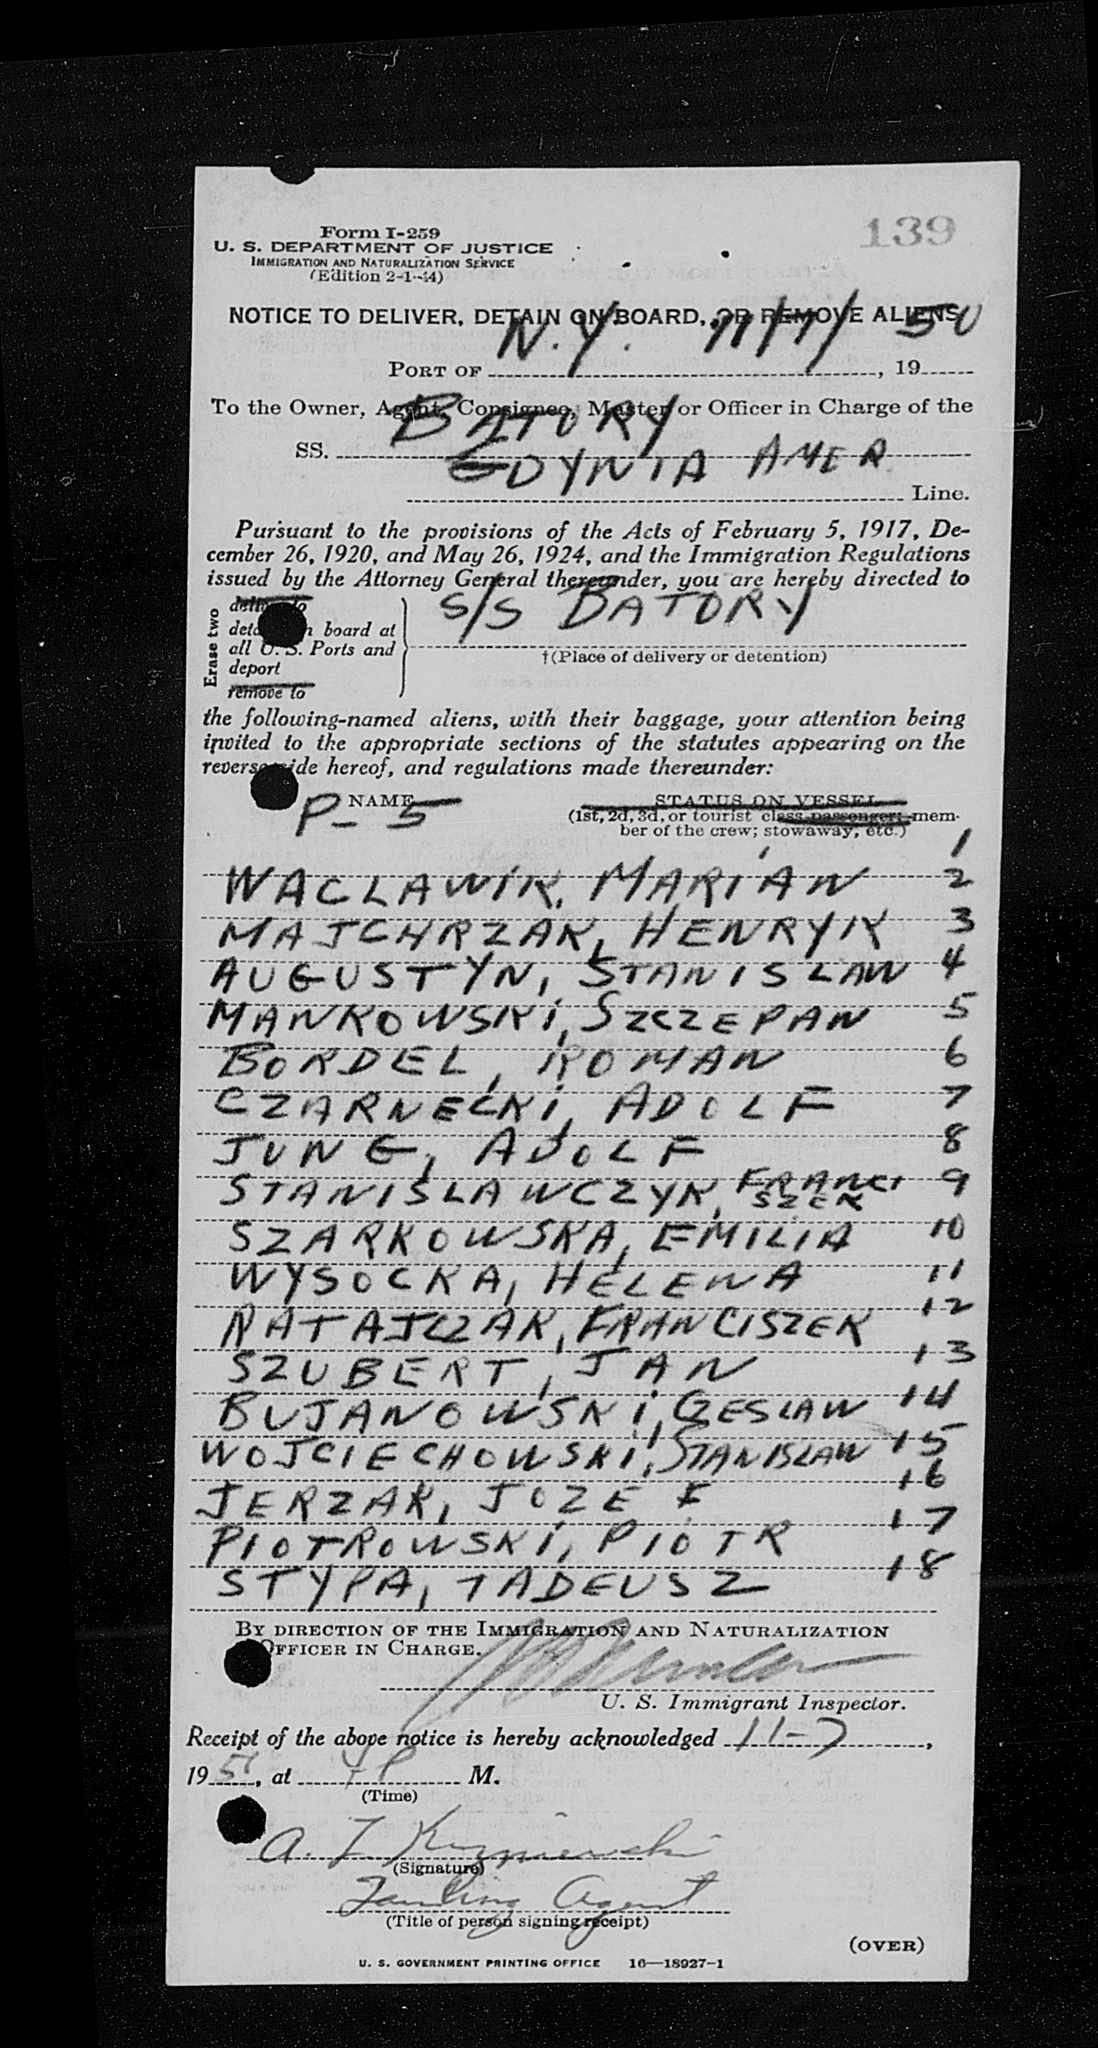 139
Form I-259
U. S. DEPARTMENT OF JUSTICE
IMMIGRATION AND NATURALIZATION SERVICE
(Edition 2-1-44)
NOTICE TO DELIVER, DETAIN ON BOARD, OR REMOVE ALIENS
PORT OF N.Y. 11/7/, 19 50
To the Owner, Agent, Consignee, Master or Officer in Charge of the
SS. BATORY
GDYNIA AMER Line.
Pursuant to the provisions of the Acts of February 5, 1917, De-
cember 26, 1920, and May 26, 1924, and the Immigration Regulations
issued by the Attorney General thereunder, you are hereby directed to
Erase two
deliver to
detain on board at
all U. S. Ports and
deport
remove to
S/S BATORY
†(Place of delivery or detention)
the following-named aliens, with their baggage, your attention being
invited to the appropriate sections of the statutes appearing on the
reverse side hereof, and regulations made thereunder:
NAME STATUS ON VESSEL
P-5 (1st, 2d, 3d, or tourist class passenger; mem-
ber of the crew; stowaway, etc.)
1
WACLAWIK, MARIAN 2
MAJCHRZAK, HENRYK 3
AUGUSTYN, STANISLAW 4
MANKOWSKI, SZCZEPAN 5
BORDEL, ROMAN 6
CZARNECKI, ADOLF 7
JUNG, ADOLF 8
STANISLAWCZYK, FRANCISZEK 9
SZARKOWSKA, EMILIA 10
WYSOCKA, HELENA 11
RATAJCZAK, FRANCISZEK 12
SZUBERT, JAN 13
BUJANOWSKI, CZESLAW 14
WOJCIECHOWSKI, STANISLAW 15
JERZAK, JOZEF 16
PIOTROWSKI, PIOTR 17
STYPA, TADEUSZ 18
BY DIRECTION OF THE IMMIGRATION AND NATURALIZATION
OFFICER IN CHARGE.
U. S. Immigrant Inspector.
Receipt of the above notice is hereby acknowledged 11-7,
19 50, at 4 P M.
(Time)
A. L. Kuzniewski
(Signature)
Landing Agent
(Title of person signing receipt)
(OVER)
U. S. GOVERNMENT PRINTING OFFICE 16—18927-1